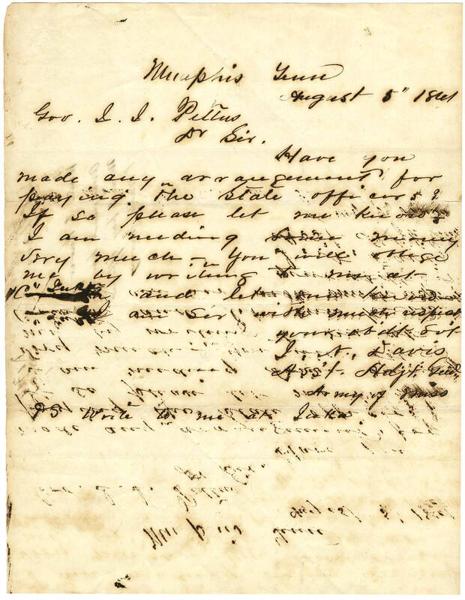 Memphis Tenn
August 5" 1861
Gov. J. J. Pettus,
Dr Sir.
Have you
made any arrangement for
paying the State officers?
If so please let me know
I am needing some money
very much. You will oblige
me by writing to me at
and let
I am Sir, with much respect
your obdt Svt
Davis
Asst. Adjt. Genl.
Army of Miss
PS Write to me at Iuka